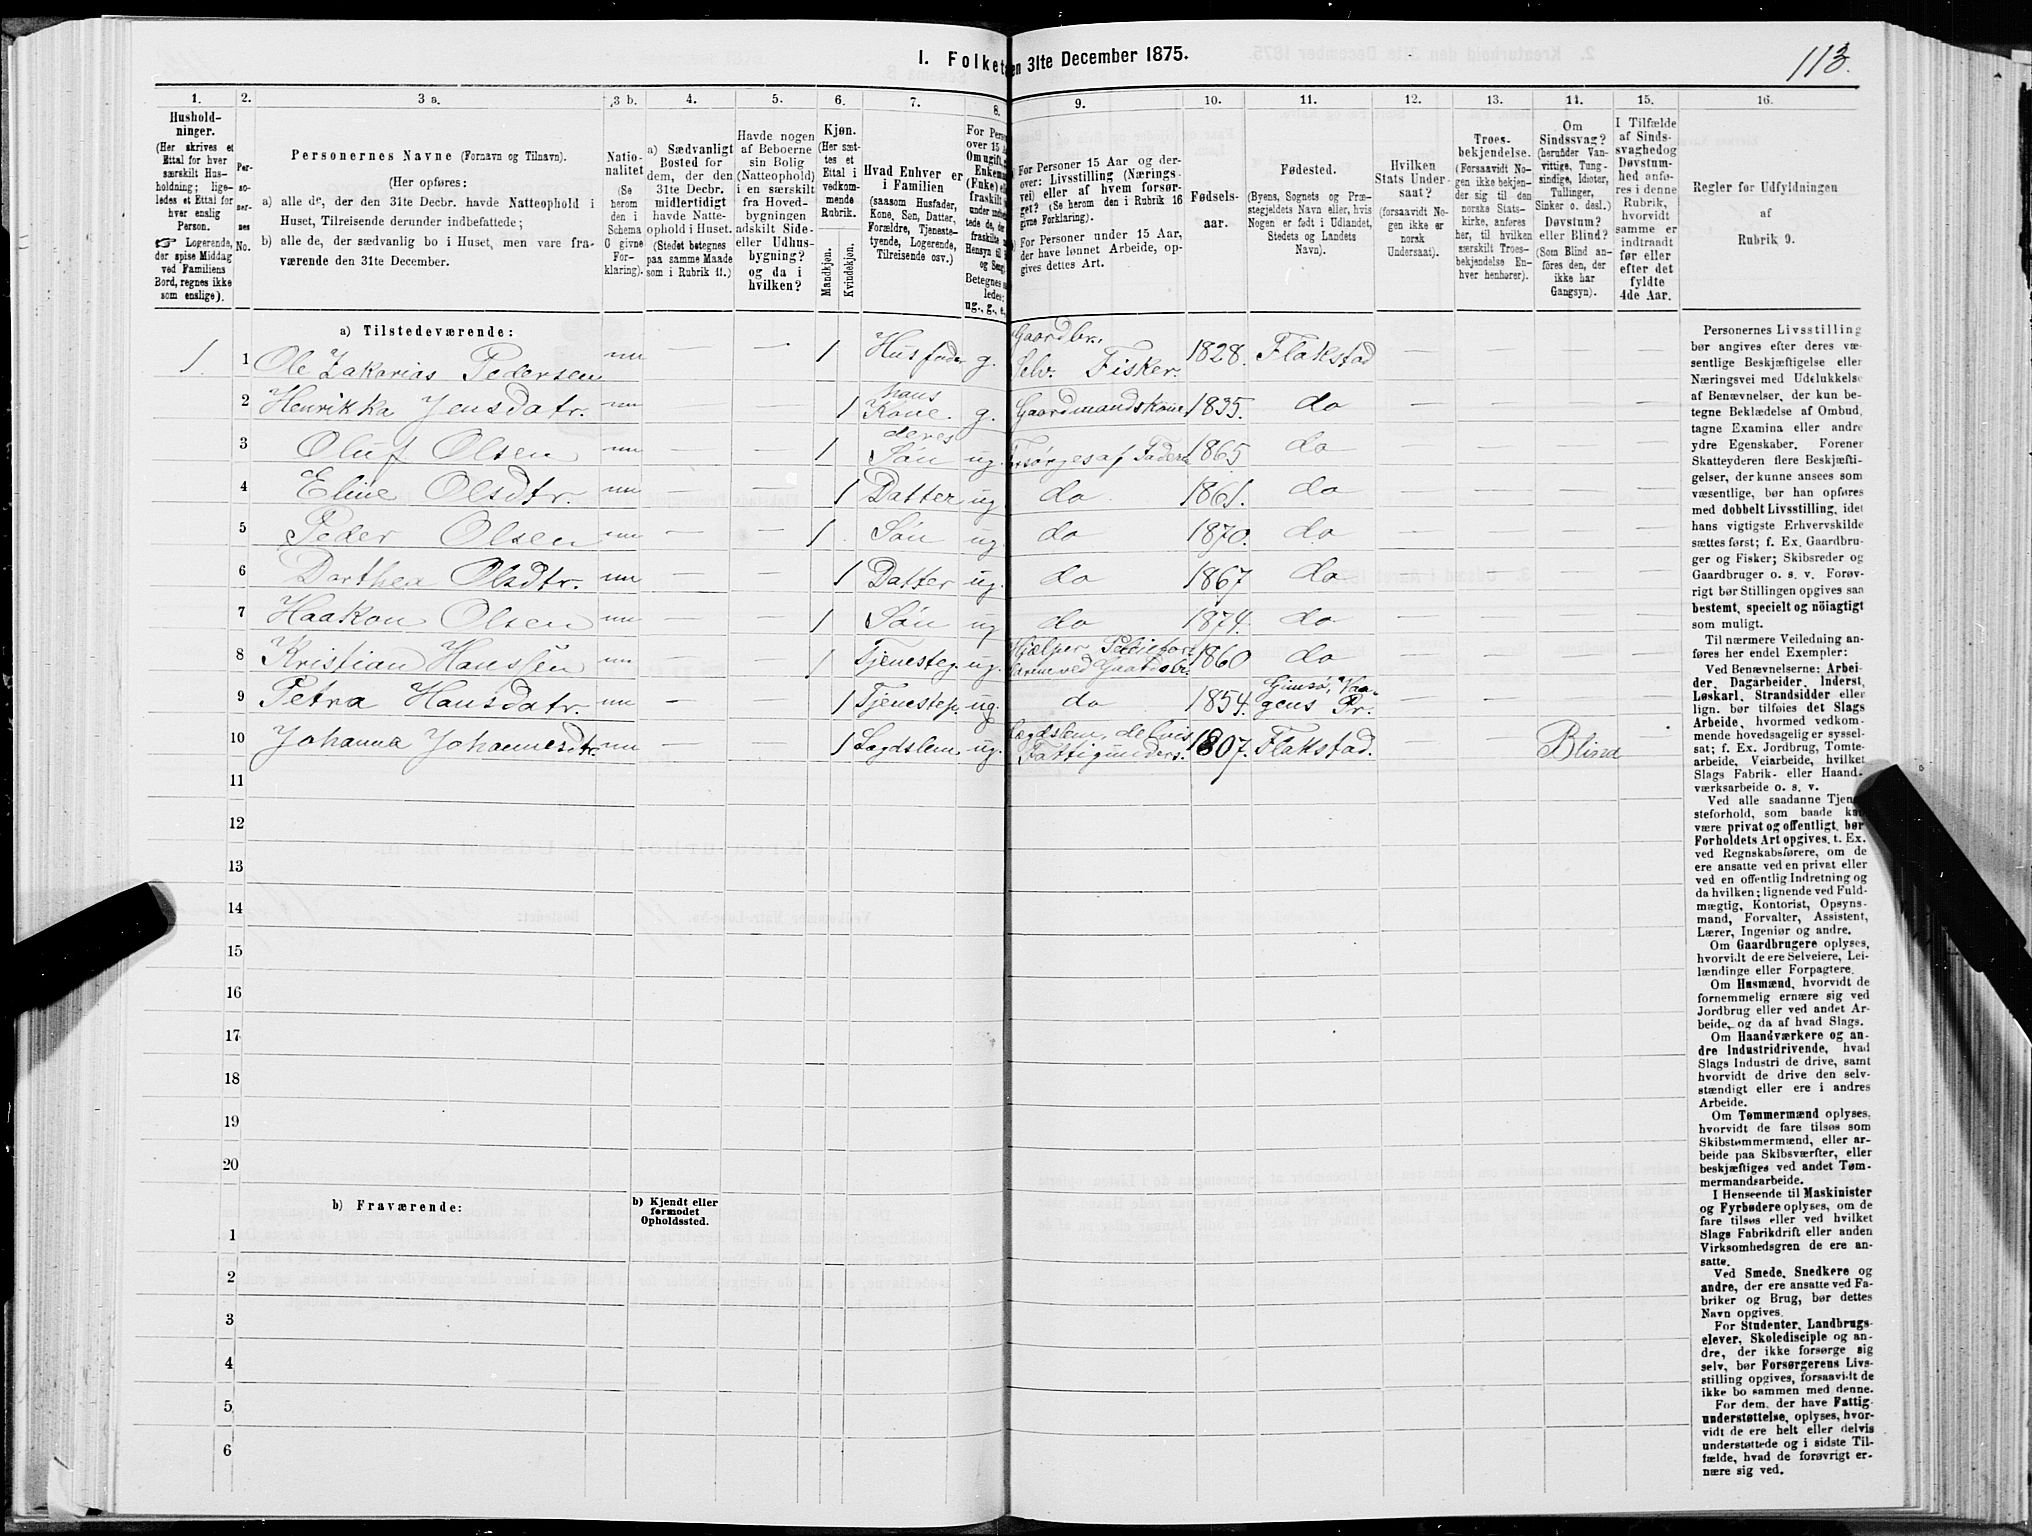 I. Folket
en 31te December 1875.
113.
1.
Hushold-
ninger.
(Her skrives et
Ettal for hver
særskilt Hus-
holdning; lige-
ledes et Ettal for
hver enslig
Person.
☞ Logerende,
der spise Middag
ved Familiens
Bord, regnes ikke
som enslige).
2.
Per-
so-
ner-
nes
No.
3 a.
Personernes Navne (Fornavn og Tilnavn).
(Her opføres:
a) alle de, der den 31te Decbr. havde Natteophold i
Huset, Tilreisende derunder indbefattede;
b) alle de, der sædvanlig bo i Huset, men vare fra-
værende den 31te December.
3 b.
Natio-
nalitet
(Se
herom
den i
Schema
G givne
For-
klaring).
4.
a) Sædvanligt
Bosted for
dem, der den
31te Decbr.
midlertidigt
havde Natte-
ophold i Huset.
(Stedet betegnes
paa samme Maade
som i Rubrik 11.)
5.
Havde nogen
af Beboerne
sin Bolig
(Natteophold)
i en særskilt
fra Hoved-
bygningen
adskilt Side-
eller Udhus-
bygning?
og da i
hvilken?
6.
Kjøn.
(Her sæt-
tes et
Ettal i
vedkom-
mende
Rubrik.
Mandkjøn.
Kvindekjøn.
7.
Hvad Enhver er
i Familien
(saasom Husfader,
Kone, Søn, Datter,
Forældre, Tjeneste-
tyende, Logerende,
Tilreisende osv.)
8.
For Pers
over 15 A
Omugift,
Enkema
(Enke) el
fraskilt
under inds
tede de, de
fraskilte
Hensyn til
og Seng
Betegnes s
ledes:
ug., g., e.
9.
For Personer 15 Aar og der-
over: Livsstilling (Nærings-
vei) eller af hvem forsør-
get? (Se herom den i Rubrik 16
givne Forklaring).
For Personer under 15 Aar,
der have lønnet Arbeide, op-
gives dettes Art.
10.
Fødsels-
aar.
11.
Fødested.
(Byens, Sognets og Præ-
stegjeldets Navn eller, hvis
Nogen er født i Udlandet,
Stedets og Landets
Navn).
12.
Hvilken
Stats Under-
saat?
(forsaavidt No-
gen ikke er
norsk
Undersaat).
13.
Troes-
bekjendelse.
(Forsaavidt No-
gen ikke bekjen-
der sig til den
norske Stats-
kirke, anføres
her, til hvilken
særskilt Troes-
bekjendelse En-
hver henhører).
14.
Om
Sindssvag?
(herunder Van-
vittige, Tung-
sindige, Idioter,
Tullinger,
Sinker o. desl.)
Døvstum?
eller Blind?
(Som Blind an-
føres den, der
ikke har
Gangsyn).
15.
I Tilfælde
af Sinds-
svaghed og
Døvstum-
hed anfø-
res i denne
Rubrik,
hvorvidt
samme er
indtraadt
før eller
efter det
fyldte
4de Aar.
16.
Regler for Udfyldningen
af
Rubrik 9.
a) Tilstedeværende:
1 1 Ole Zakarias Pedersen nn — — 1 Husfader g. Gaardbr.
Selv. Fisker. 1828. Flakstad — — — —
2 Henrikka Jensdatr. nn — — 1 hans
Kone. g. Gaardmandskone 1835. do — — — —
3 Oluf Olsen nn — — 1 deres
Søn ug. Forsørges af Faderen 1865 do — — — —
4 Eline Olsdtr. nn — — 1 Datter ug do 1861. do — — — —
5 Peder Olsen nn — — 1 Søn ug. do 1870. do — — — —
6 Dorthea Olsdtr. nn — — 1 Datter ug. do 1867 do — — — —
7 Haakon Olsen nn — — 1 Søn ug do 1874. do — — — —
8 Kristian Hanssen nn — — 1 Tjenesteg. ug. Hjælper
ved Gaardsbr. 1860 do — — — —
9 Petra Hansdatr. nn — — 1 Tjenestep. ug. do 1854. Gimsø, Vaa-
gens Pr. — — — —
10 Johanna Johannesdtr. nn — — 1 Lægdslem ug. Lægdslem, delvis
Fattigunders. 1807. Flakstad. — — Blind
11
12
13
14
15
16
17
18
19
20
b) Fraværende:
b) Kjendt eller
formodet
Opholdssted.
1
2
3
4
5
6
Personernes Livsstilling
bør angives efter deres væ-
sentlige Beskjæftigelse eller
Næringsvei med Udelukkelse
af Benævnelser, der kun be-
tegne Beklædelse af Ombud,
tagne Examina eller andre
ydre Egenskaber. Forener
Skatteyderen flere Beskjæfti-
gelser, der kunne ansees som
væsentlige, bør han opføres
med dobbelt Livsstilling, idet
hans vigtigste Erhvervskilde
sættes først; f. Ex. Gaardbru-
ger og Fisker; Skibsreder og
Gaardbruger o. s. v. Forøv-
rigt bør Stillingen opgives saa
bestemt, specielt og nöiagtigt
som muligt.
Til nærmere Veiledning an-
føres her endel Exempler:
Ved Benævnelserne: Arbei-
der, Dagarbeider, Inderst,
Løskarl, Strandsidder eller
lign. bør tilføies det Slags
Arbeide, hvormed vedkom-
mende hovedsagelig er syssel-
sat; f. Ex. Jordbrug, Tomte-
arbeide, Veiarbeide, hvilket
Slags Fabrik- eller Haand-
værksarbeide o. s. v.
Ved alle saadanne Tjene-
steforhold, som baade kan
være privat og offentligt, bør
Forholdets Art opgives, t. Ex.
ved Regnskabsførere, om de
ere ansatte ved en privat eller
ved en offentlig Indretning og
da hvilken; lignende ved Fuld-
mægtig, Kontorist, Opsyns-
mand, Forvalter, Assistent,
Lærer, Ingeniør og andre.
Om Gaardbrugere oplyses,
hvorvidt de ere Selveiere, Lei-
lændinge eller Forpagtere.
Om Husmænd, hvorvidt de
fornemmelig ernære sig ved
Jordbrug eller ved andet Ar-
beide, og da af hvad Slags.
Om Haandværkere og an-
dre Industridrivende, hvad
Slags Industri de drive, samt
hvorvidt de drive den selv-
stændigt eller ere i andres
Arbeide.
Om Tømmermænd oplyses,
hvorvidt de fare tilsøs som
Skibstømmermænd, eller ar-
beide paa Skibsværfter, eller
beskjæftiges ved andet Tøm-
mermandsarbeide.
I Henseende til Maskinister
og Fyrbødere oplyses, om de
fare tilsøs eller ved hvilket
Slags Fabrikdrift eller anden
Virksomhedsgren de ere an-
satte.
Ved Smede, Snedkere og
andre, der ere ansatte ved Fa-
briker og Brug, bør dettes
Navn opgives.
For Studenter, Landbrugs-
elever, Skoledisciple og an-
dre, der ikke forsørge sig
selv, bør Forsørgerens Livs-
stilling opgives, forsaavidt de
ikke bo sammen med denne.
For dem, der have Fattig-
understøttelse, oplyses, hvor-
vidt de ere helt eller delvis
understøttede og i sidste Til-
fælde, hvad de forøvrigt er-
nære sig ved.